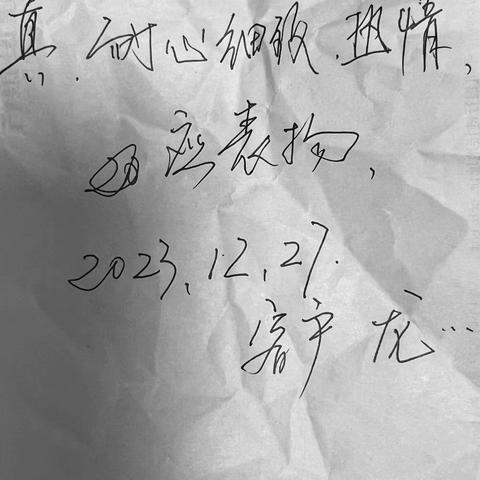 真、耐心细致、热情,
应表扬,
2023.12.27.
客户 龙…